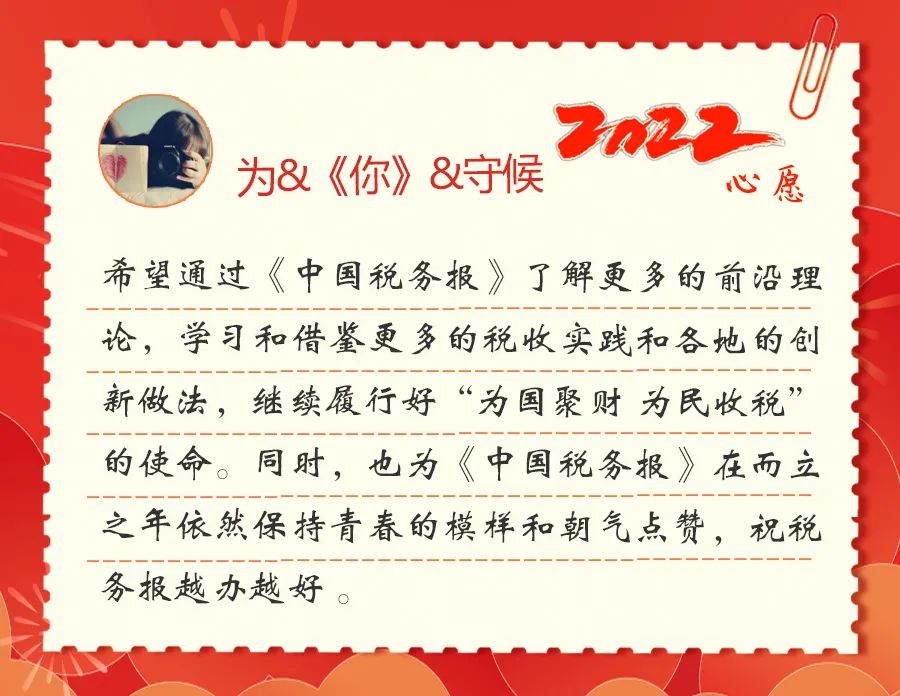 为&《你》&守候
2022
心愿
希望通过《中国税务报》了解更多的前沿理
论，学习和借鉴更多的税收实践和各地的创
新做法，继续履行好“为国聚财 为民收税”
的使命。同时，也为《中国税务报》在而立
之年依然保持青春的模样和朝气点赞，祝税
务报越办越好。